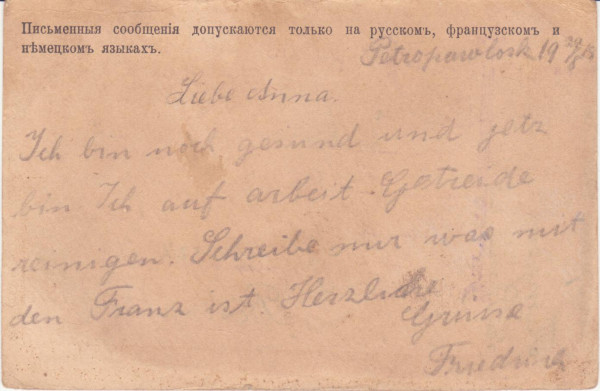 Письменныя сообщенія допускаются только на русскомъ, французскомъ и
нѣмецкомъ языкахъ.
Petropawlosk 19
Liebe Anna.
Ich bin noch gesund und jetz
bin Ich auf arbeit. Getreide
reinigen. Schreibe nur was mit
den Franz ist. Herzliche
Grüsse
Friedrich